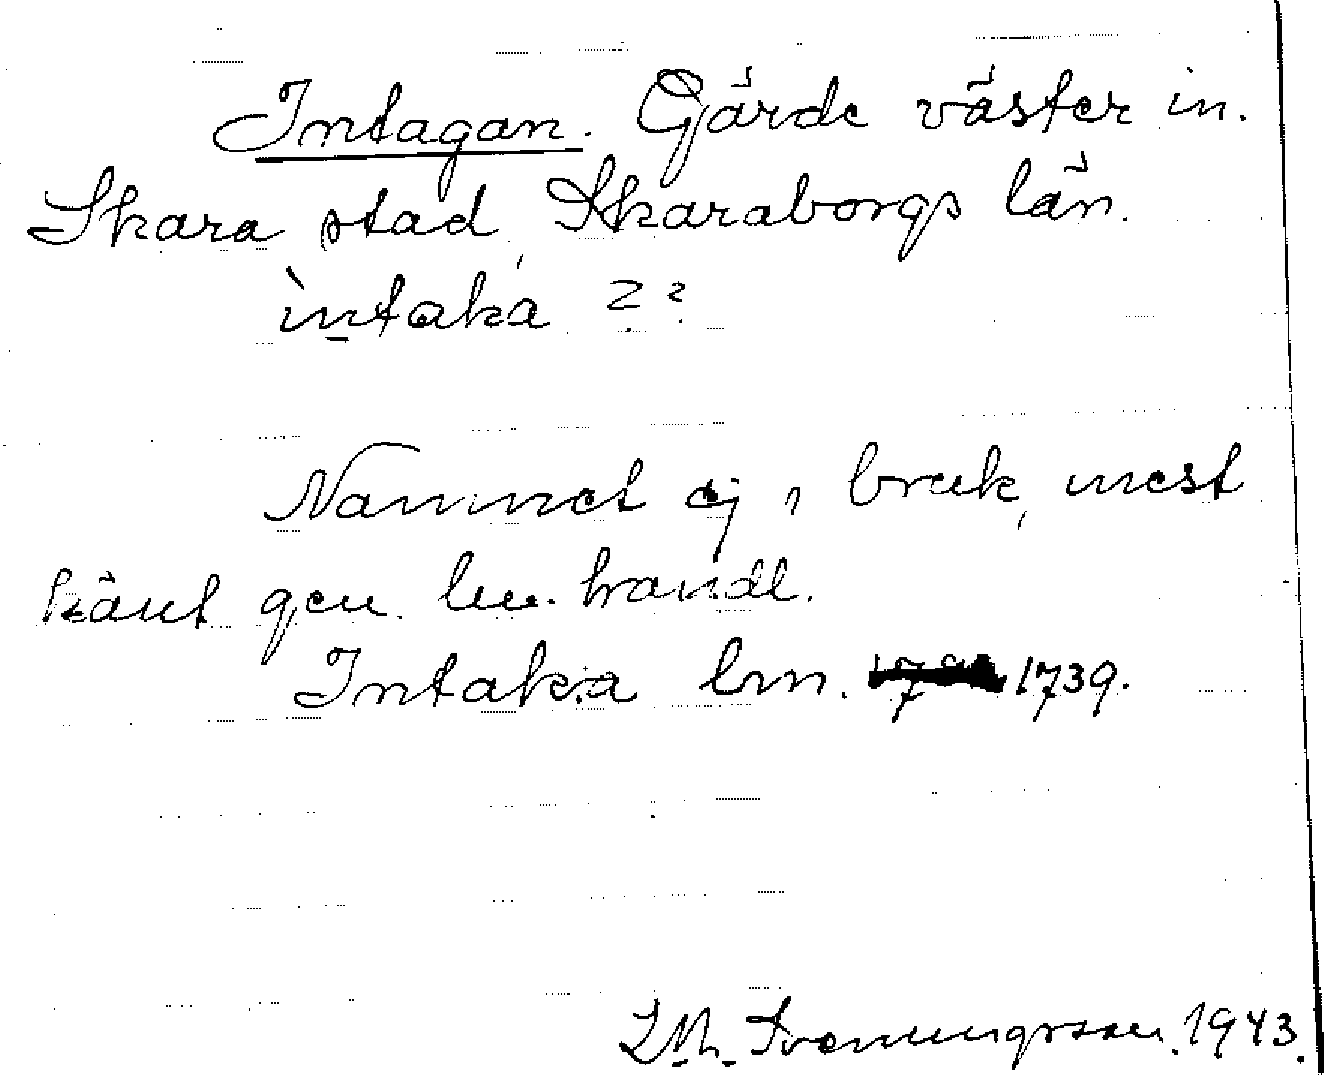 Intagan. Gärde väster in.
Skara stad, Skaraborgs län.
ìntaká ? ?
Namnet ej i bruk, mest
känt gen. lm. handl.
Intaka lm. 1739.
Svenungsson. 1943.